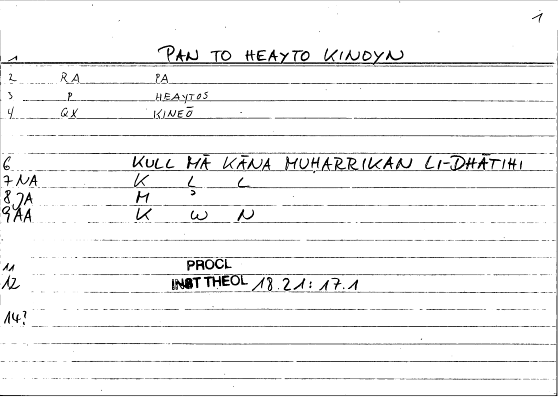 1
1 PAN TO HEAYTO KINOYN
2 RA PA
3 P HEAYTOS
4 QX KINEŌ
6 KULL MĀ KĀNA MUḤARRIKAN LI-DHĀTIHI
7 NA K L L
8 JA M ʾ
9 AA K W N
11 PROCL
12 INST THEOL 18.21: 17.1
14?